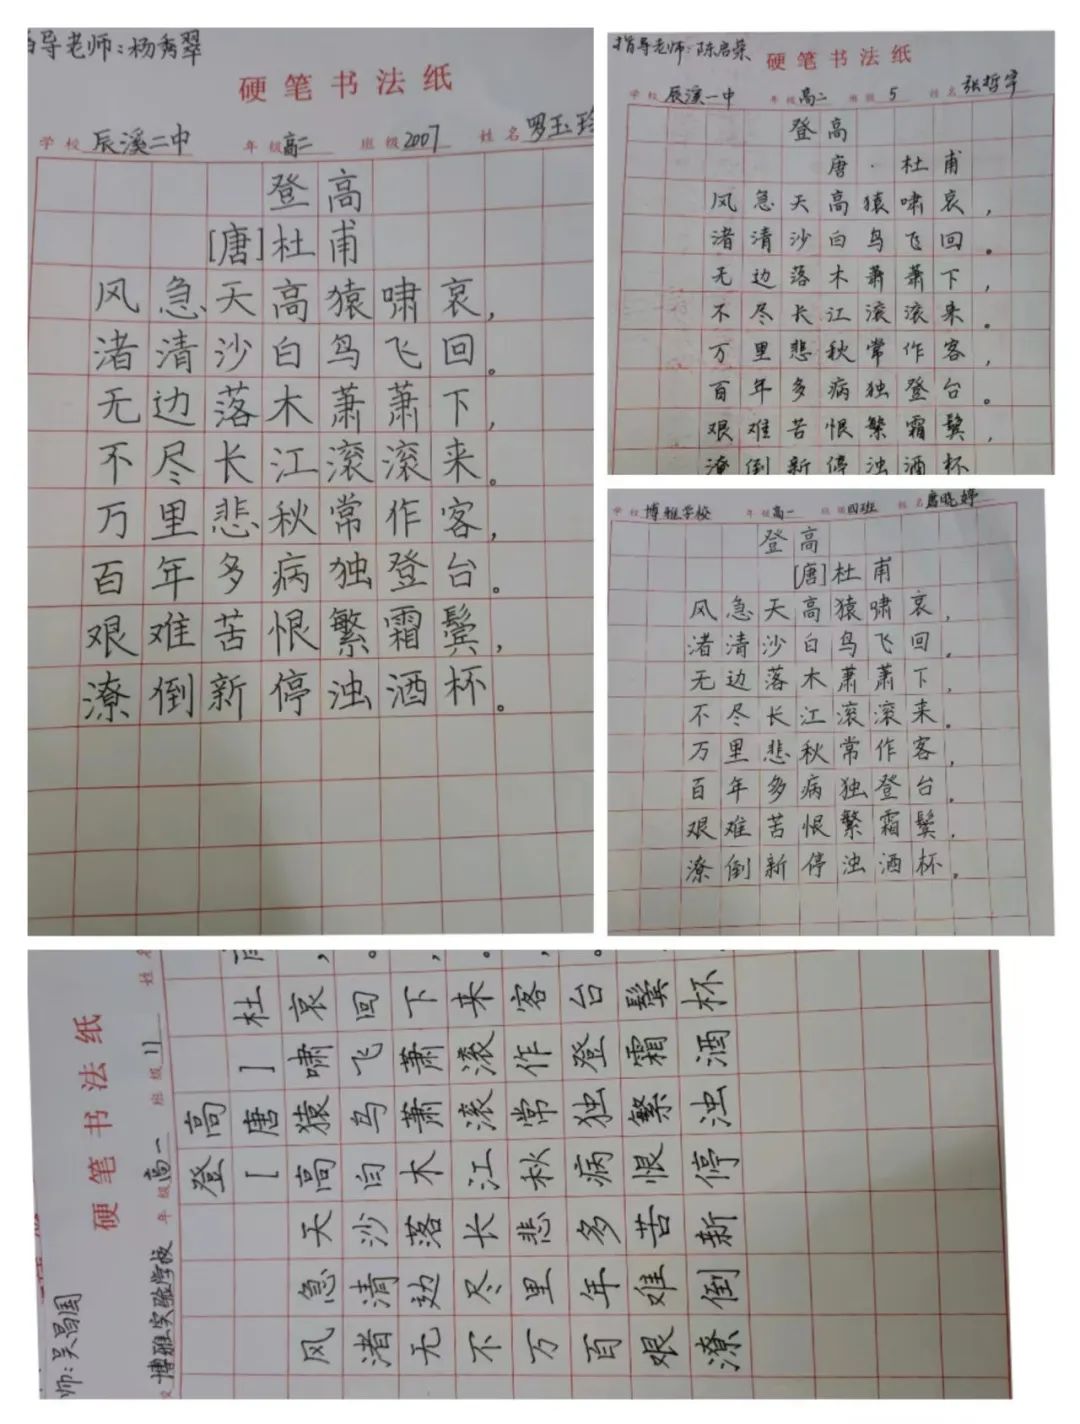 导老师:杨秀翠
硬笔书法纸
学校 辰溪二中 年级 高二 班级 2007 姓名 罗玉
登高
[唐]杜甫
风急天高猿啸哀,
渚清沙白鸟飞回。
无边落木萧萧下,
不尽长江滚滚来。
万里悲秋常作客,
百年多病独登台。
艰难苦恨繁霜鬓,
潦倒新停浊酒杯。
指导老师:陈启荣
硬笔书法纸
学校 辰溪一中 年级 高二 班级 5 姓名 张哲宇
登高
唐·杜甫
风急天高猿啸哀,
渚清沙白鸟飞回。
无边落木萧萧下,
不尽长江滚滚来。
万里悲秋常作客,
百年多病独登台。
艰难苦恨繁霜鬓,
潦倒新停浊酒杯
学校 博雅学校 年级 高一 班级 四班 姓名 晓婷
登高
[唐]杜甫
风急天高猿啸哀,
渚清沙白鸟飞回.
无边落木萧萧下,
不尽长江滚滚来.
万里悲秋常作客,
百年多病独登台.
艰难苦恨繁霜鬓,
潦倒新停浊酒杯.
师:吴昌国
硬笔书法纸
校 博雅实验学校 年级 高一 班级 11 姓
登高
[唐]杜
风急天高猿啸哀,
渚清沙白鸟飞回。
无边落木萧萧下,
不尽长江滚滚来。
万里悲秋常作客,
百年多病独登台。
艰难苦恨繁霜鬓
潦倒新停浊酒杯